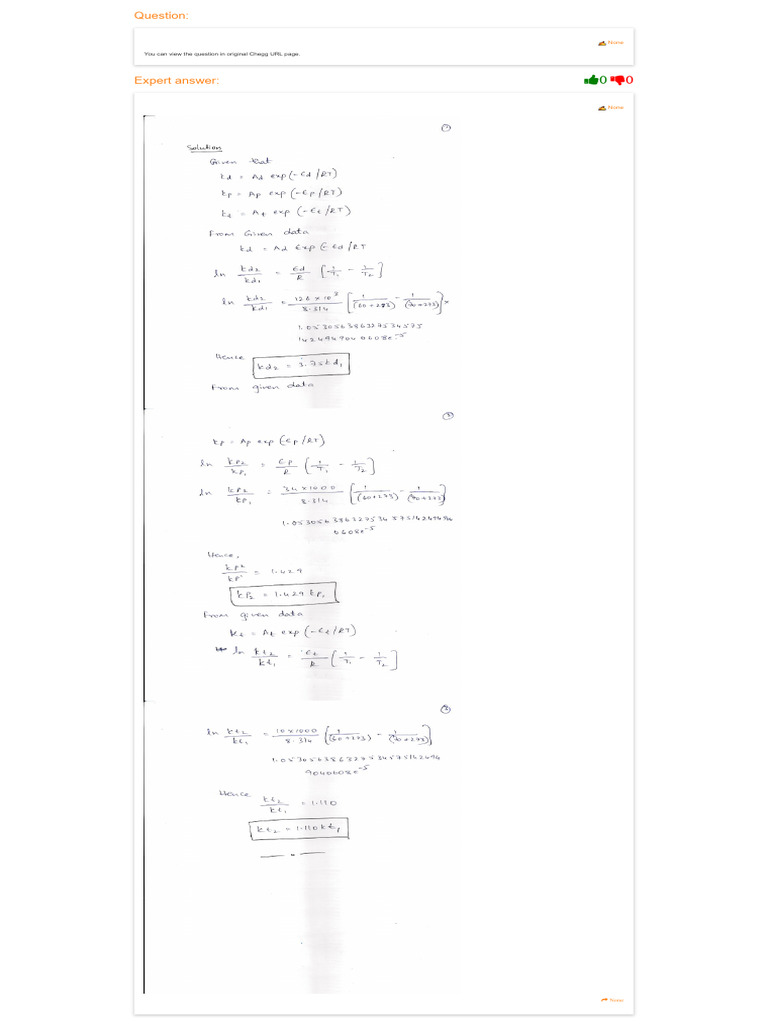 Question:
None
You can view the question in original Chegg URL page.
Expert answer:
0 0
None
1
Solution
Given that
kd = Ad exp(-Ed/RT)
kp = Ap exp(-Ep/RT)
kt = At exp (-Et/RT)
From Given data
kd = Ad Exp (-Ed/RT
ln kd2/kd1 = Ed/R [1/T1 - 1/T2]
ln kd2/kd1 = 126 × 10³/8.314 [1/(60+273) - 1/(70+273)] ×
1.0530563863275 34575
1424949040608e⁻⁵
Hence
kd2 = 3.75kd1
From given data
2
kp = Ap exp (-Ep/RT)
ln kp2/kp1 = Ep/R (1/T1 - 1/T2]
ln kp2/kp1 = 34×1000/8.314 [1/(60+273) - 1/(90+273)]
1.0530563863275345751424949
0608e⁻⁵
Hence,
kp2/kp1 = 1.429
kp2 = 1.429 kp1
From given data
kt = At exp (-Et/RT)
ln kt2/kt1 = Et/R [1/T1 - 1/T2]
3
ln kt2/kt1 = 10×1000/8.314 [1/(60+273) - 1/(90+273)]
1.05305638632753457514 2494
9040608e⁻⁵
Hence
kt2/kt1 = 1.110
kt2 = 1.110kt1
None